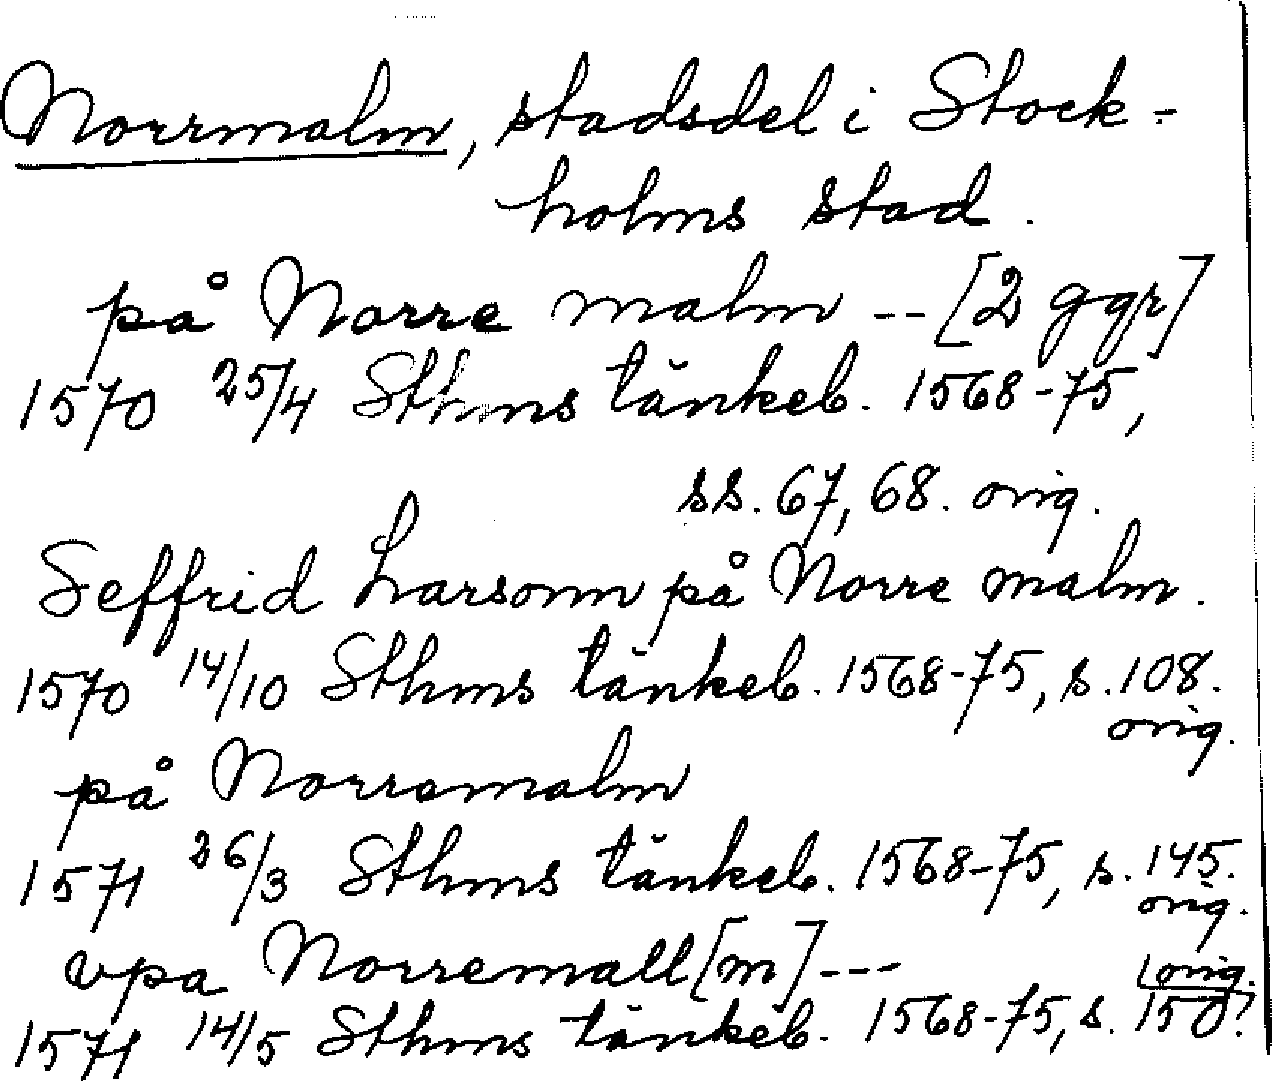 Norrmalm, stadsdel i Stock-
holms stad.
på Norre malm -- [2 ggr]
1570 25/4 Sthms tänkeb. 1568-75,
ss. 67, 68. orig.
Seffrid Larsonn på Norre malm.
1570 14/10 Sthms tänkeb. 1568-75, s. 108.
orig.
på Norremalm
1571 26/3 Sthms tänkeb. 1568-75, s. 145.
orig.
vpa Norremall[m] ---
orig.
1571 14/5 Sthms tänkeb. 1568-75, s. 150.